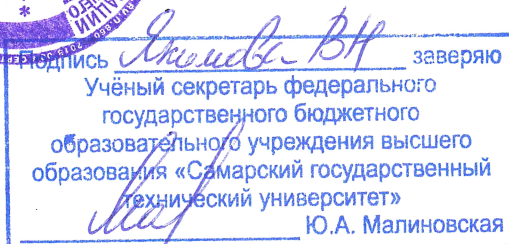 Подпись Якимова ВН заверяю
Учёный секретарь федерального
государственного бюджетного
образовательного учреждения высшего
образования «Самарский государственный
технический университет»
Ю.А. Малиновская